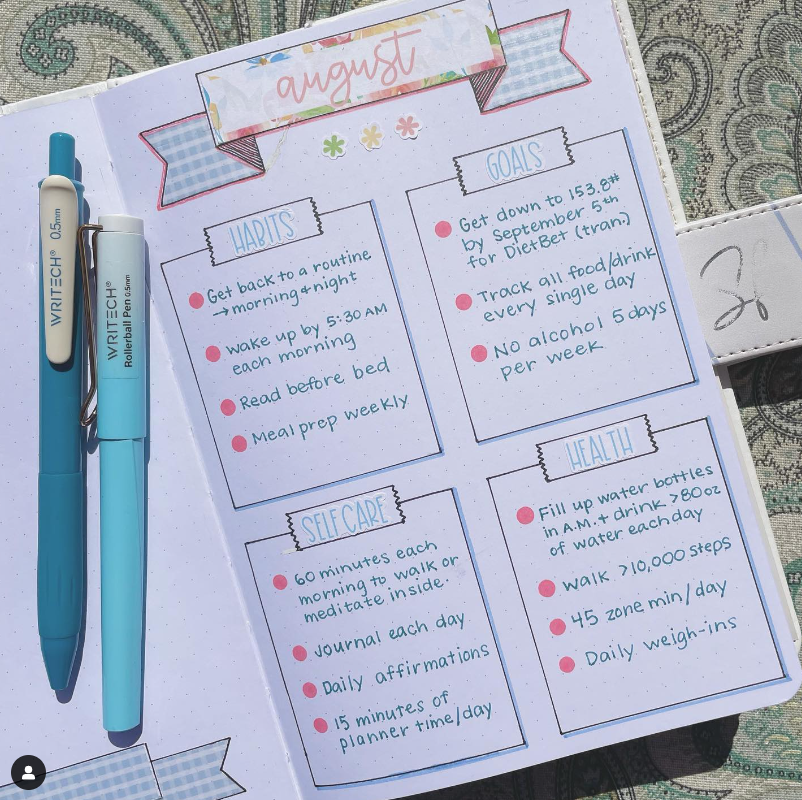 august
HABITS
Get back to a routine
→ morning & night
wake up by 5:30 AM
each morning
Read before bed
Meal prep weekly
GOALS
Get down to 153.8#
by September 5th
for DietBet (tran.)
Track all food/drink
every single day
No alcohol 5 days
per week
SELF CARE
60 minutes each
morning to walk or
meditate inside.
Journal each day
Daily affirmations
15 minutes of
planner time/day
HEALTH
Fill up water bottles
in A.M. + drink >80oz
of water each day
walk >10,000 steps
45 zone min/day
Daily weigh-ins
WRITECH® 0.5mm
WRITECH®
Rollerball Pen 0.5mm